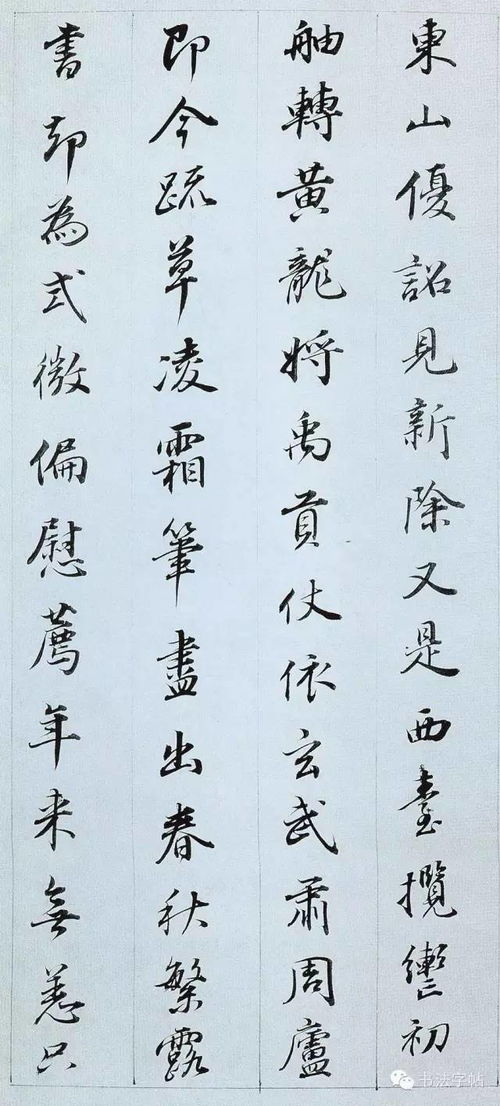 東山優詔見新除又是西臺攬轡初
舳轉黃龍將禹貢仗依玄武肅周廬
即今疏草凌霜筆盡出春秋繁露
書却為式微偏慰薦年来無恙只
书法字帖